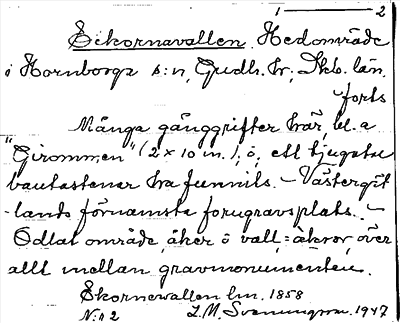 1 — 2
Ekornavallen, Hedområde
i Hornborga s:n, Gudh. hr; Skb. län.
forts
Många gånggrifter här, bl.a
"Girommen" (2 x 10 m.), ö, ett tjugotal
bautastenar ha funnits. – Västergöt-
lands förnämsta forngravsplats. –
Odlat område, åker ö vall, = åkror, över
allt mellan gravmonumenten.
Ekornevallen hm. 1858
N:r 2 L.M. Svenungson. 1947